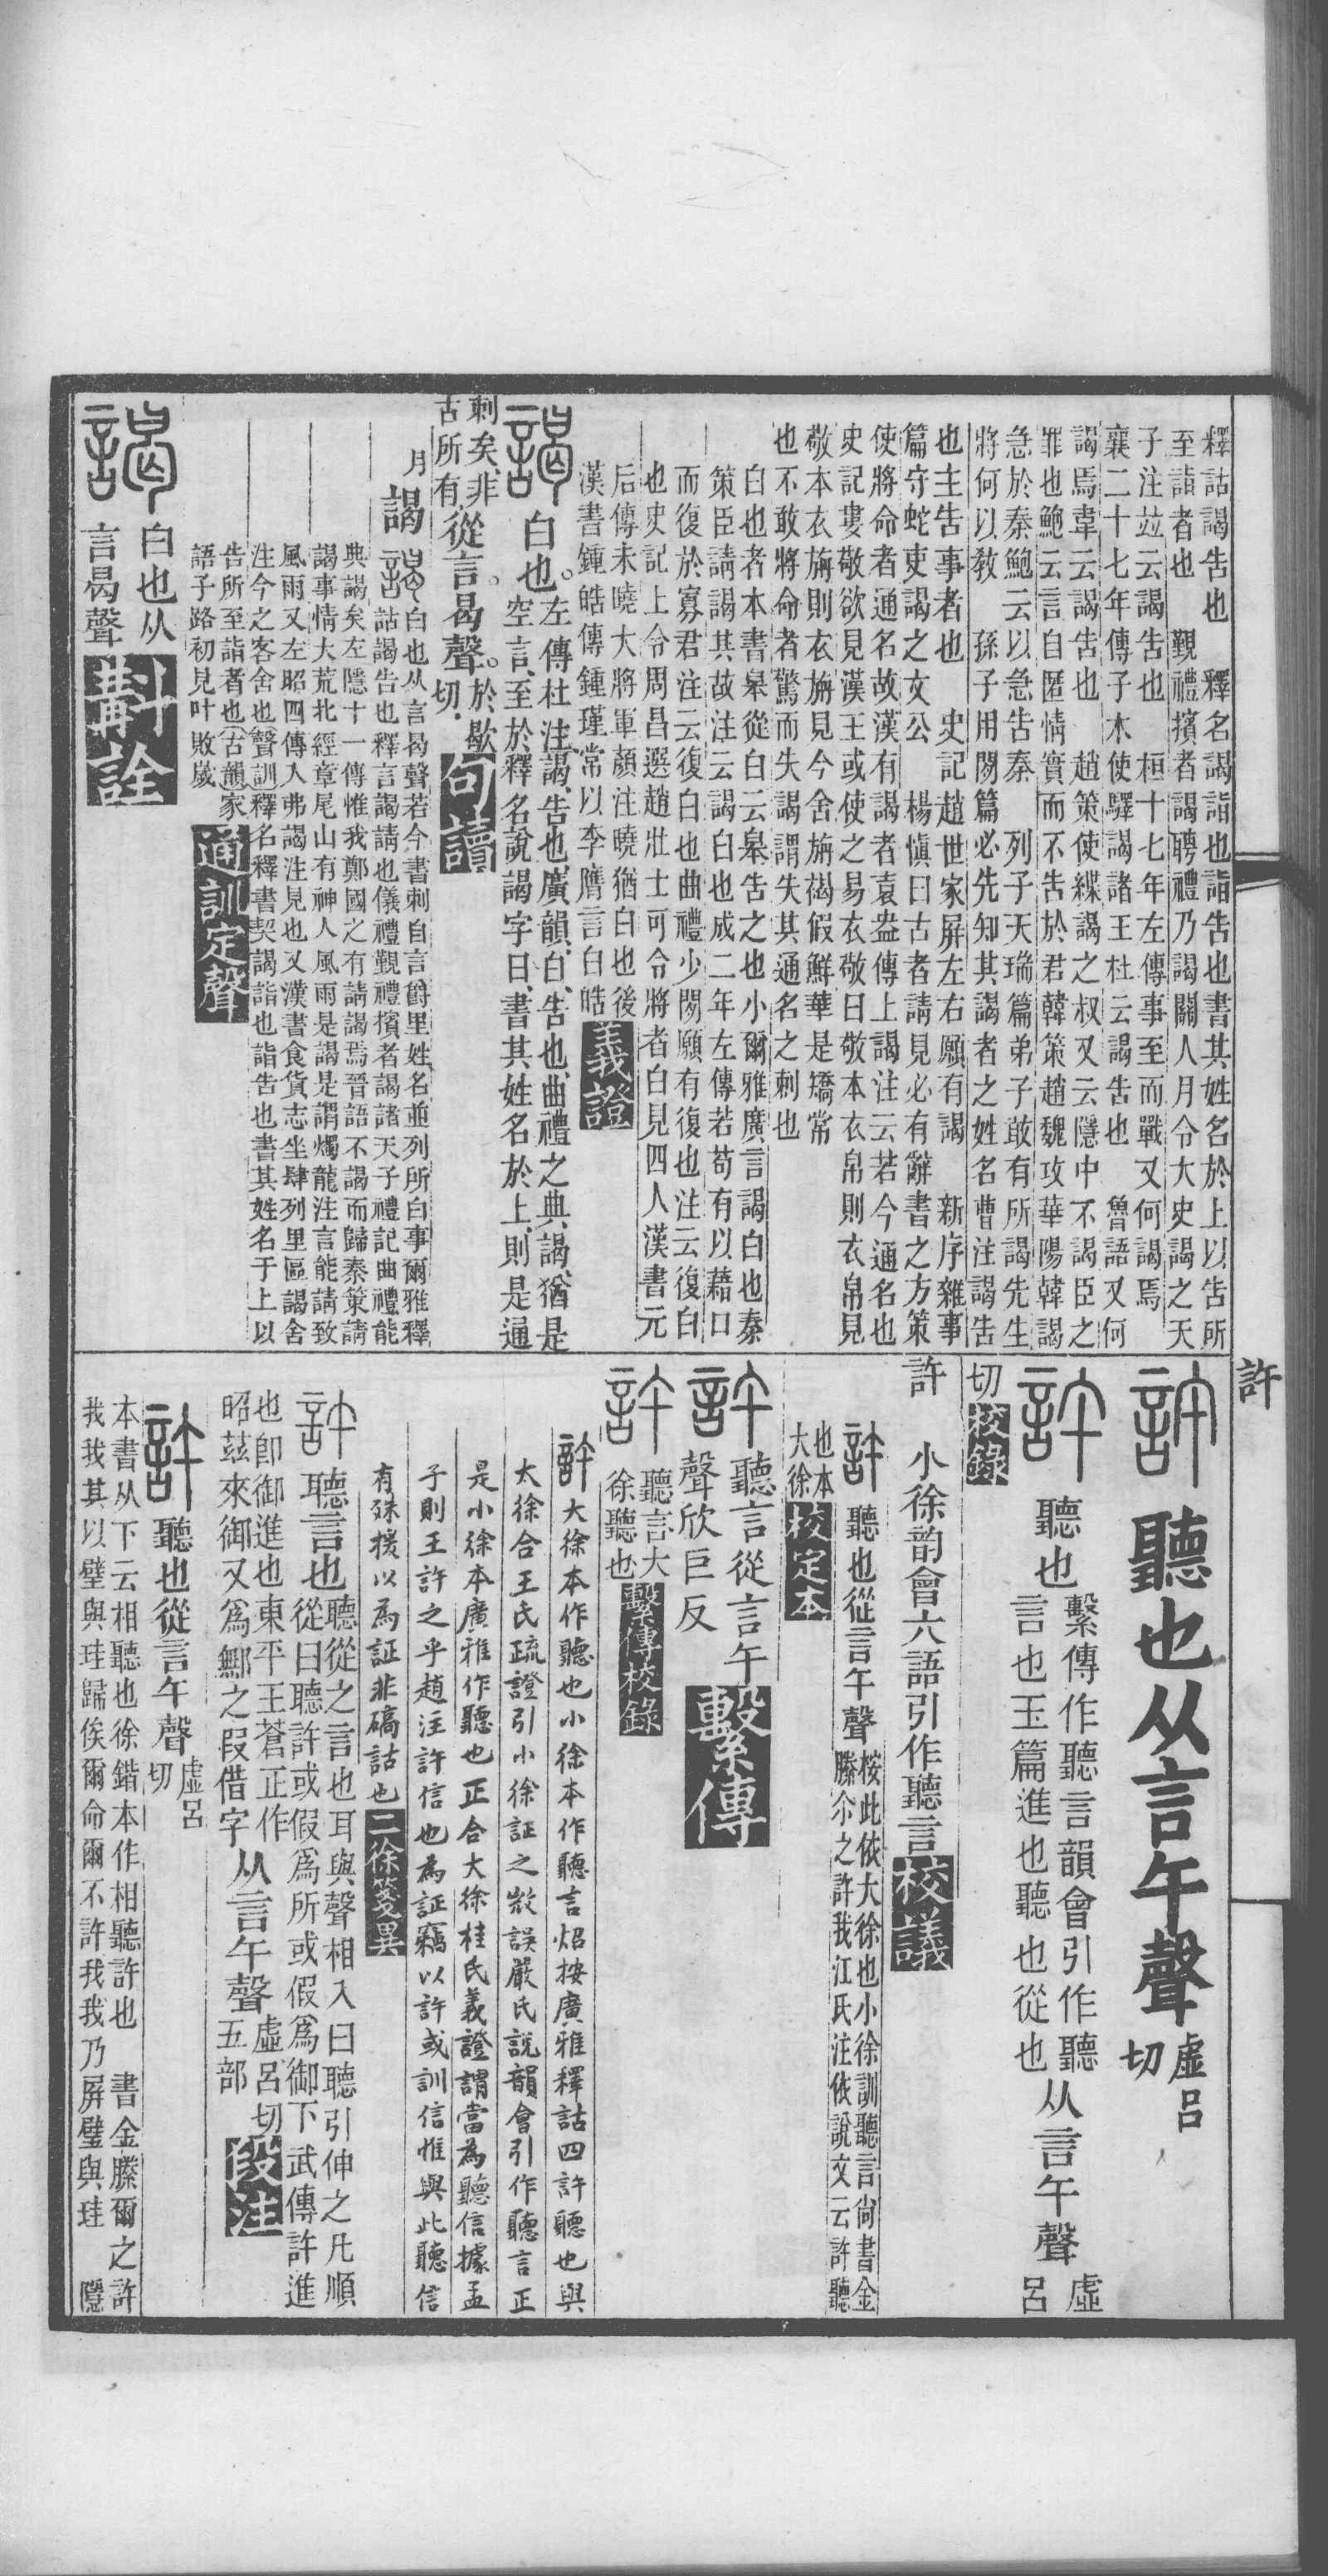 釋詁謁告也　釋名謁詣也詣告也書其姓名於上以告所
至詣者也　覲禮擯者謁聘禮乃謁關人月令大史謁之天
子注竝云謁告也　桓十七年左傳事至而戰又何謁焉
襄二十七年傳子木使驛謁諸王杜云謁告也　魯語又何
謁焉韋云謁告也　趙策使緤謁之叔又云隱中不謁臣之
罪也鮑云言自匿情實而不告於君韓策趙魏攻華陽韓謁
急於秦鮑云以急告秦　列子天瑞篇弟子敢有所謁先生
將何以敎　孫子用閒篇必先知其謁者之姓名曹注謁告
也主告事者也　史記趙世家屏左右願有謁　新序雜事
篇守蛇吏謁之文公　楊愼曰古者請見必有辭書之方策
使將命者通名故漢有謁者袁盎傳上謁注云若今通名也
史記婁敬欲見漢王或使之易衣敬曰敬本衣帛則衣帛見
敬本衣旃則衣旃見今舍旃褐假鮮華是矯常
也不敢將命者驚而失謁謂失其通名之刺也
白也者本書皋從白云皋告之也小爾雅廣言謁白也秦
策臣請謁其故注云謁白也成二年左傳若苟有以藉口
而復於寡君注云復白也曲禮少閒願有復也注云復白
也史記上令周昌選趙壯士可令將者白見四人漢書元
后傳未曉大將軍顏注曉猶白也後
漢書鍾皓傳鍾瑾常以李膺言白皓義證
謁白也。左傳杜注謁、告也、廣韻、白、告也、曲禮之典謁、猶是
空言、至於釋名說謁字曰、書其姓名於上、則是通
刺矣、非
古所有、從言。曷聲。於歇
切.句讀
月　謁　謁白也从言曷聲若今書刺自言爵里姓名並列所白事爾雅釋
詁謁告也釋言謁請也儀禮覲禮擯者謁諸天子禮記曲禮能
典謁矣左隱十一傳惟我鄭國之有請謁焉晉語不謁而歸秦策請
謁事情大荒北經章尾山有神人風雨是謁是謂燭龍注言能請致
風雨又左昭四傳入弗謁注見也又漢書食貨志坐肆列里區謁舍
注今之客舍也聲訓釋名釋書契謁詣也詣告也書其姓名于上以
告所至詣者也古韻家
語子路初見叶敗歲通訓定聲
謁白也从
言曷聲斠詮
許
許聽也从言午聲虛呂
切
許聽也繫傳作聽言韻會引作聽
言也玉篇進也聽也從也从言午聲虛
呂
切校錄
許　小徐韵會六語引作聽言校議
許聽也從言午聲桉此依大徐也小徐訓聽言尙書金
縢尒之許我江氏注依說文云許聽
也本
大徐校定本
許聽言從言午
聲欣巨反繫傳
許聽言大
徐聽也繫傳校錄
許大徐本作聽也小徐本作聽言炤按廣雅釋詁四許聽也與
大徐合王氏疏證引小徐証之微誤嚴氏說韻會引作聽言正
是小徐本廣雅作聽也正合大徐桂氏義證謂當為聽信據孟
子則王許之乎趙注許信也為証竊以許或訓信惟與此聽信
有殊援以為証非碻詁也二徐箋異
許聽言也聽從之言也耳與聲相入曰聽引伸之凡順
從曰聽許或假爲所或假爲御下武傳許進
也卽御進也東平王蒼正作
昭茲來御又爲鄦之叚借字从言午聲虛呂切
五部段注
許聽也從言午聲虛呂
切
本書从下云相聽也徐鍇本作相聽許也　書金縢爾之許
我我其以璧與珪歸俟爾命爾不許我我乃屏璧與珪　隱